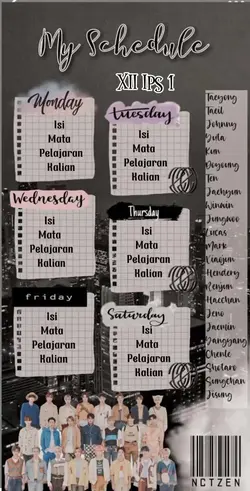 My Schedule
XII Ips 1
Monday
Isi
Mata
Pelajaran
Kalian
Tuesday
Isi
Mata
Pelajaran
Kalian
Wednesday
Isi
Mata
Pelajaran
Kalian
Thursday
Isi
Mata
Pelajaran
Kalian
friday
Isi
Mata
Pelajaran
Kalian
Saturday
Isi
Mata
Pelajaran
Kalian
Taeyong
Taeil
Johnny
Yuta
Kun
Doyoung
Ten
Jaehyun
Winwin
Jungwoo
Lucas
Mark
Xiaojun
Hendery
Renjun
Haechan
Jeno
Jaemin
Yangyang
Chenle
Shotaro
Sungchan
Jisung
NCTZEN